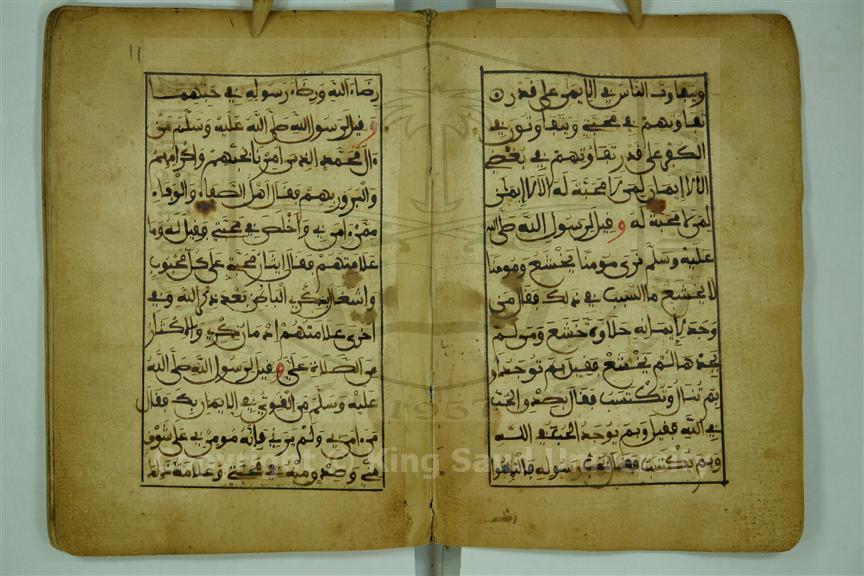 ويتفاوت الناس في الايمن على قدر
تفاوتهم في محبتي ويتفاوتون في
الكفر على قدر تفاوتهم في بغضي
الالا ايمان لمن لا محبة له الالا ايمن
لمن لا محبة له وقيل لرسول الله صلى الله
عليه وسلم نرى مومنا يخشع ومومنا
لا يخشع ما السبب في ذلك فقال من
وجد لايمنه حلاوة خشع ومن لم
يجدها لم يخشع فقيل بم توجد او
بم تنال وتكتسب فقال بصدق الحب
في الله فقيل وبم يوجد الحب في الله
وبم يكتسب فقال بحب رسوله فالتمسوا
رضا
11
رضاء الله ورضاء رسوله في حبهما
وقيل لرسول الله صلى الله عليه وسلم من
ءال محمد الذين امرنا بحبهم واكرامهم
والبرور بهم فقال اهل الصفاء والوفاء
من ءامن بي واخلص في محبتي وقيل له وما
علامتهم فقال ايثار محبتي على كل محبوب
واشتغال بذكري الباطن بعد ذكر الله وفي
اخرى علامتهم ادمان ذكري والاكثار
من الصلاة علي وقيل لرسول الله صلى الله
عليه وسلم من القوي في الايمان بك فقال
من ءامن بي ولم يرني فانه مومن بي على شوق
مني وصدق منه في محبتي وعلامة ذلك
Copyright © King Saud University
1957